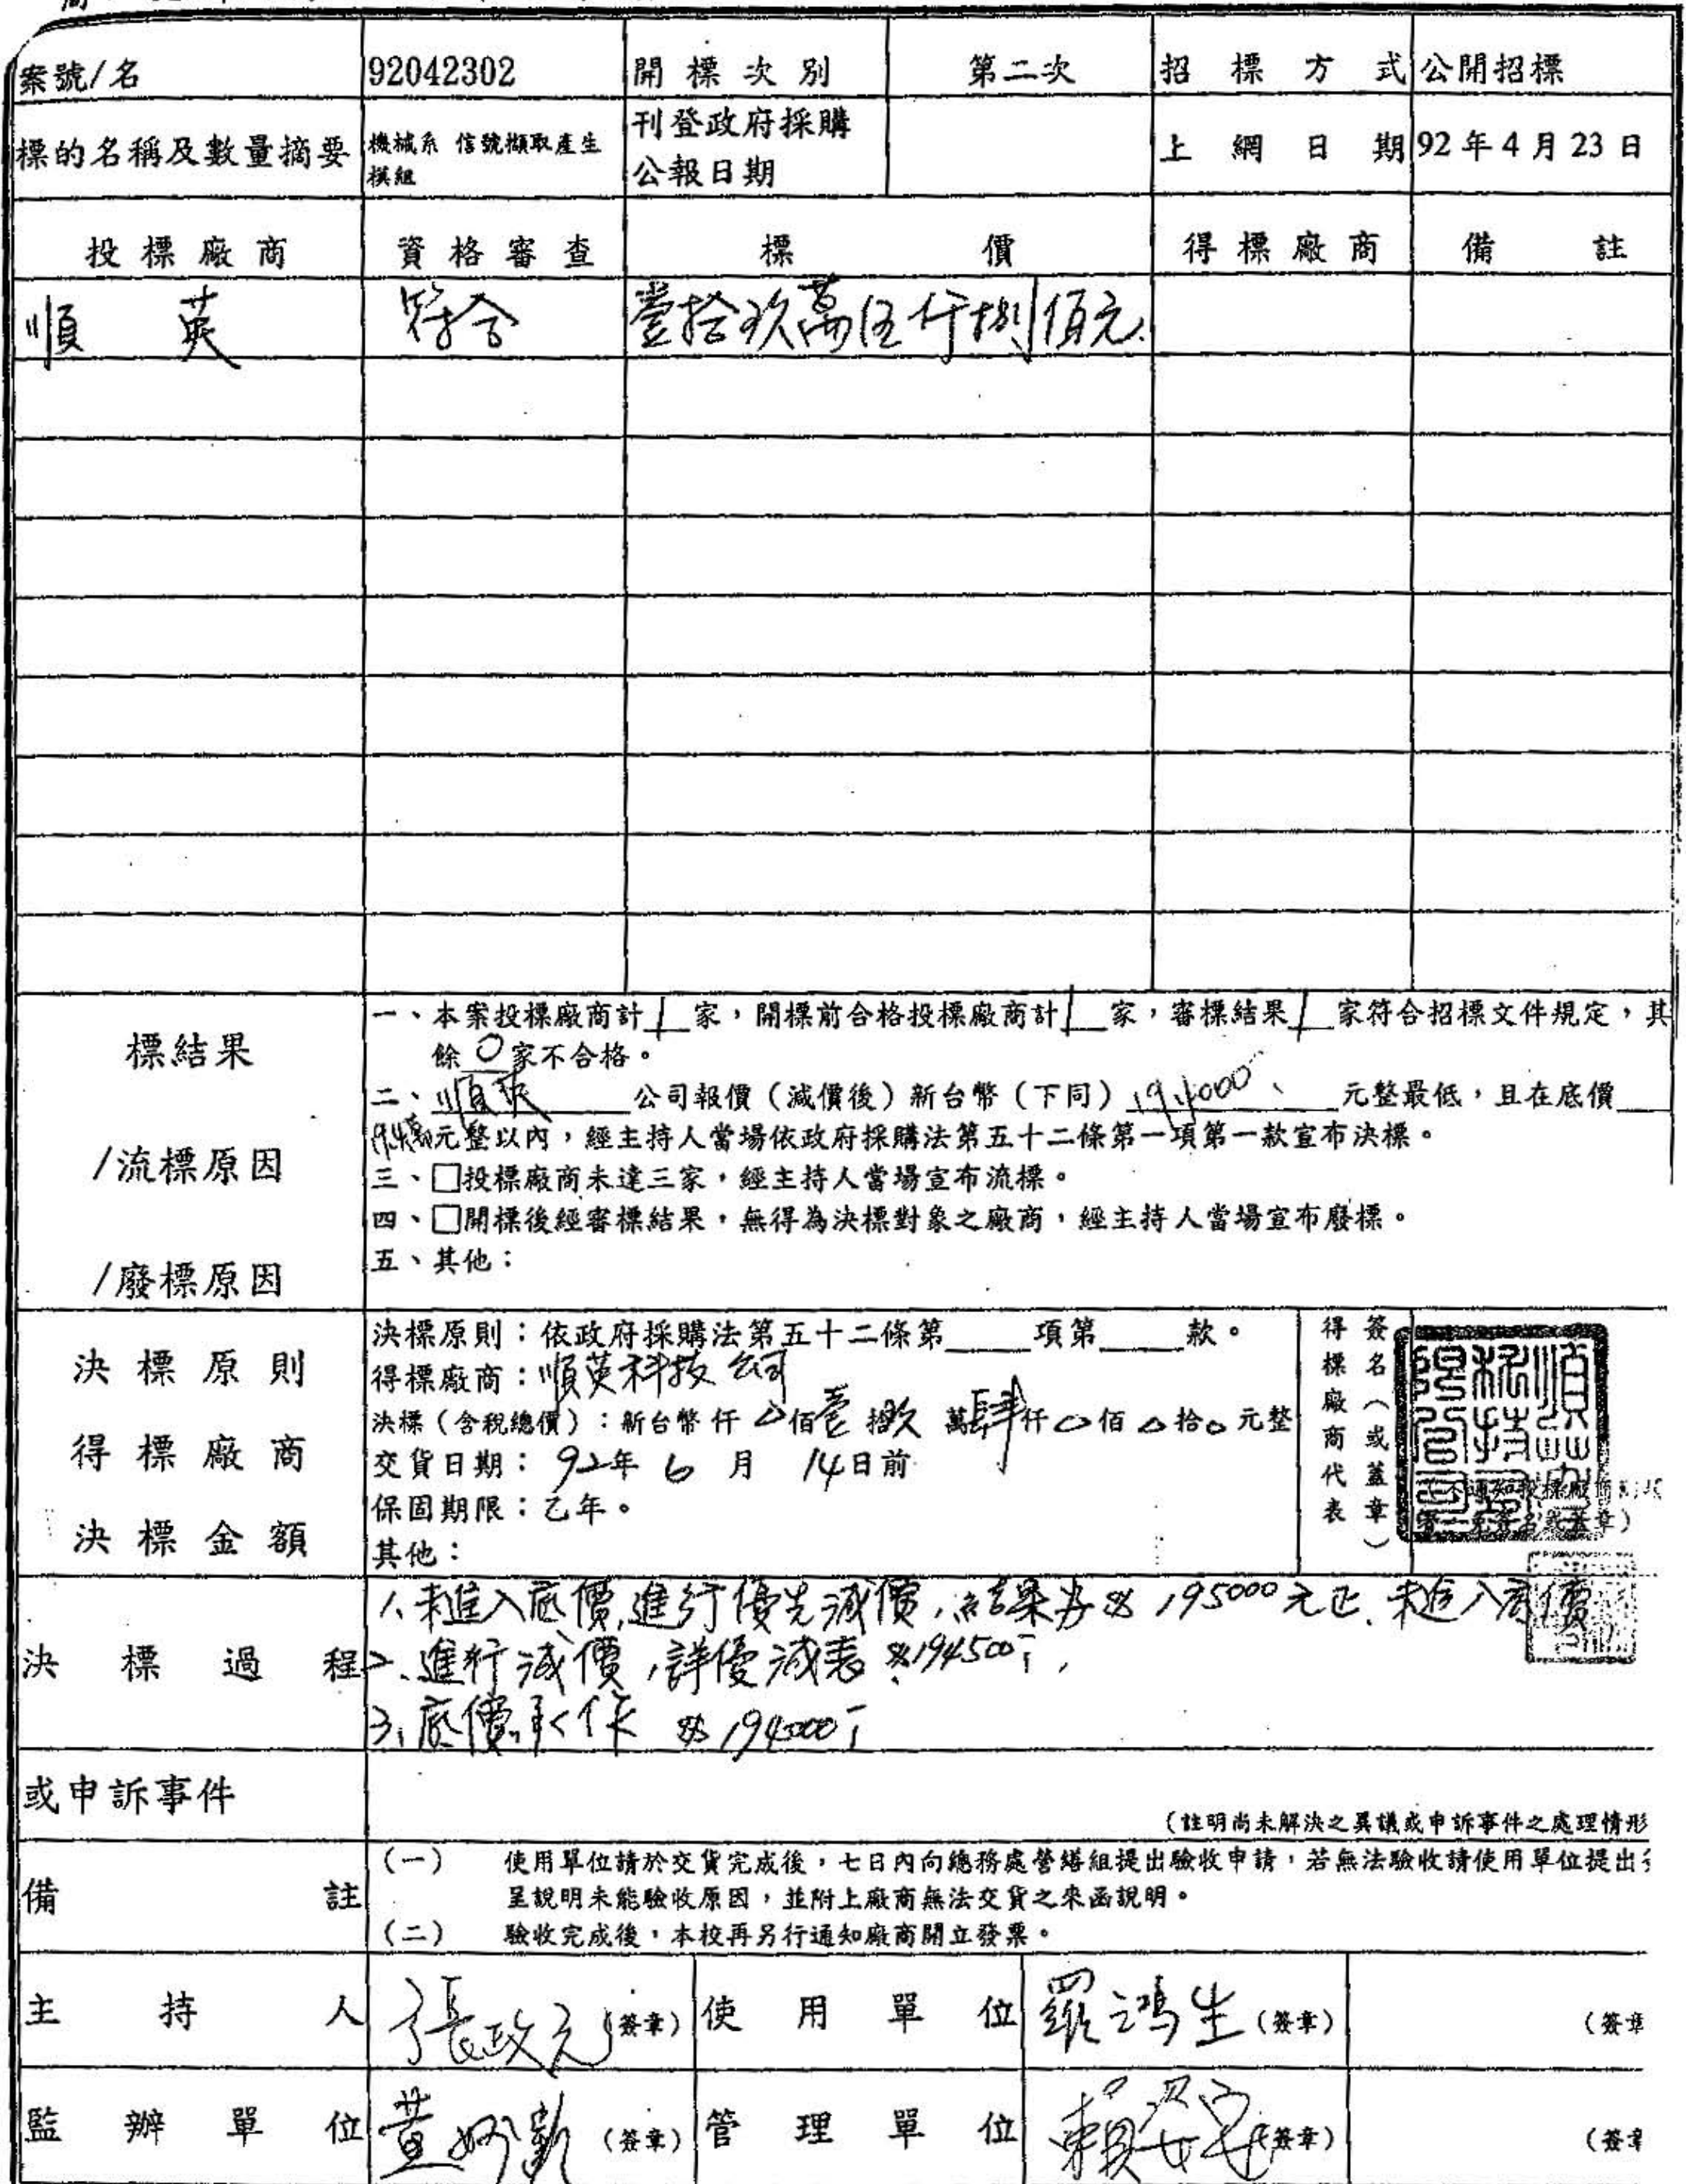 案號/名 92042302 開標次別 第二次 招標方式 公開招標
標的名稱及數量摘要 機械系 信號擷取產生模組 刊登政府採購公報日期 上網日期 92年4月23日
投標廠商 資格審查 標價 得標廠商 備註
順英 符合 壹拾玖萬伍仟捌佰元
標結果
/流標原因
/廢標原因
一、本案投標廠商計1家，開標前合格投標廠商計1家，審標結果1家符合招標文件規定，其
餘0家不合格。
二、順英公司報價（減價後）新台幣（下同）194000元整最低，且在底價
19.4萬元整以內，經主持人當場依政府採購法第五十二條第一項第一款宣布決標。
三、□投標廠商未達三家，經主持人當場宣布流標。
四、□開標後經審標結果，無得為決標對象之廠商，經主持人當場宣布廢標。
五、其他：
決標原則
得標廠商
決標金額
決標原則：依政府採購法第五十二條第____項第____款。
得標廠商：順英科技公司
決標（含稅總價）：新台幣 仟 0佰壹拾玖萬肆仟0佰0拾0元整
交貨日期：92年6月14日前
保固期限：乙年。
其他：
得標廠商代表
簽名（或蓋章）
決標過程
1、未進入底價，進行優先減價，結果為 195000元正，未進入底價
2、進行減價，詳優減表 194500
3、底價承作 194000
或申訴事件
（註明尚未解決之異議或申訴事件之處理情形
備註
（一） 使用單位請於交貨完成後，七日內向總務處營繕組提出驗收申請，若無法驗收請使用單位提出
呈說明未能驗收原因，並附上廠商無法交貨之來函說明。
（二） 驗收完成後，本校再另行通知廠商開立發票。
主持人 張政元（簽章） 使用單位 羅鴻生（簽章） （簽章
監辦單位 黃（簽章） 管理單位 賴（簽章） （簽章